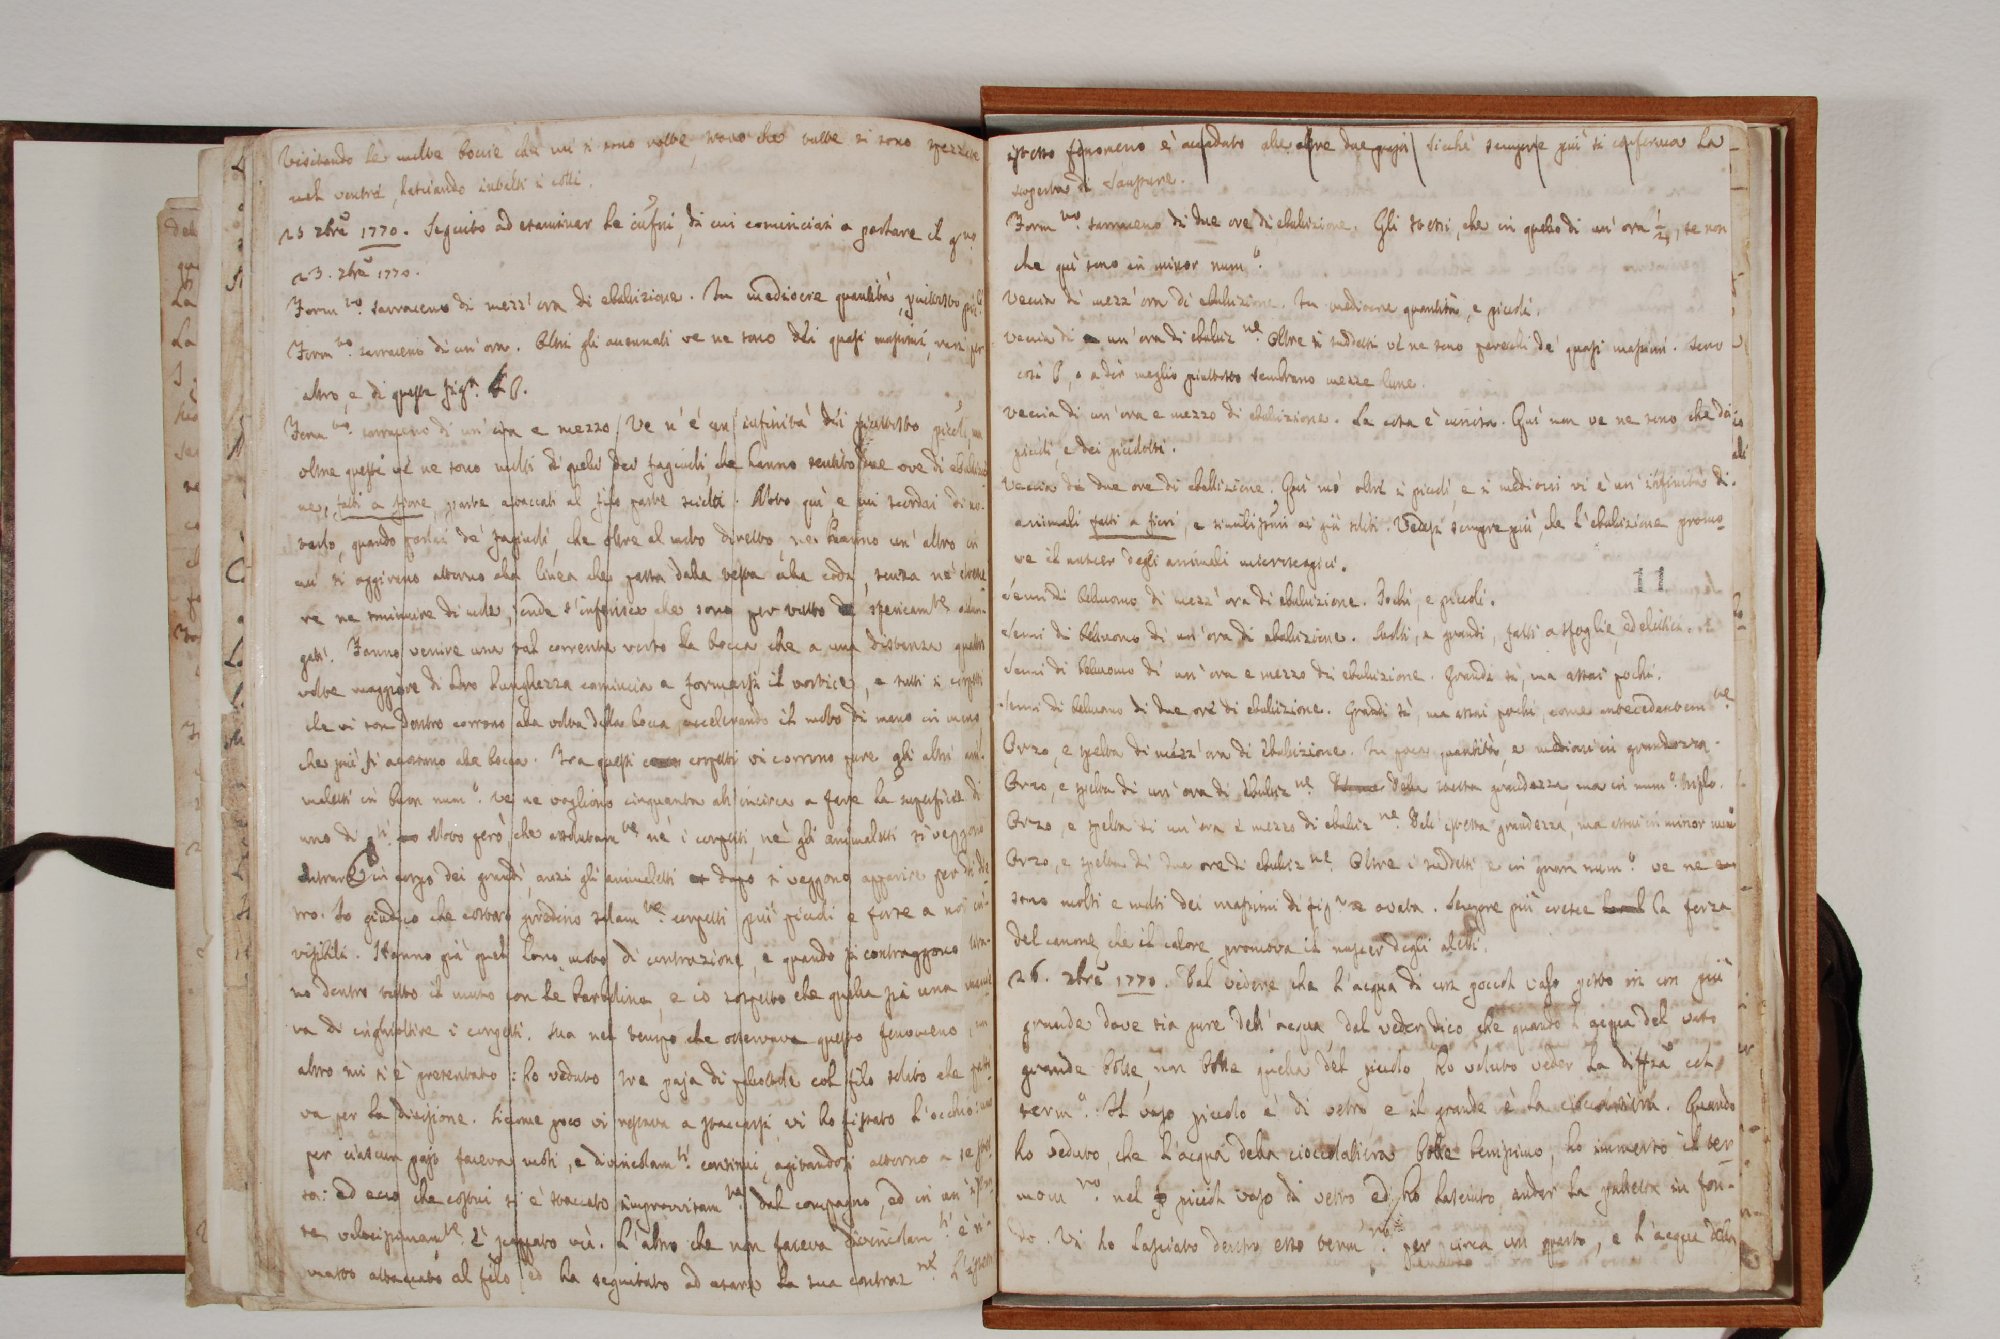 Visitando le molte bocie che mi si sono rotte, trovo che tutte si sono spezzate
nel ventre, lasciando intatti i colli.
25 9bre 1770. Seguito ad esaminar le infusi, di cui cominciai a parlare il gno
23. 9bre 1770.
Form.to sarraceno di mezz'ora di ebulizione. In mediocre quantità, piuttosto picc.
Form.to sarraceno di un'ora. Oltre gli accennati ve ne sono dei quasi massimi, rari per
altro, e di questa fig.a
Form.to sarraceno di un'ora e mezzo. Ve n'è un'infinità dei piuttosto piccoli, ma
oltre questi ve ne sono molti di quelli dei fagiuoli, che hanno sentito due ore di ebulizio
ne, fatti a fiore, parte attaccati al filo parte sciolti. Noto qui, e mi scordai di no-
tarlo, quando parlai de' fagiuoli, che oltre al moto diretto, ne hanno un altro in
cui si aggirano attorno alla linea che passa dalla testa alla coda, senza nè cresce
re ne sminuire di mole, onde s'inferisce che sono per tutto sfericam.te allun-
gati. Fanno venire una tal corrente verso la bocca, che a una distanza quattro
volte maggiore di loro lunghezza comincia a formarsi il vortice, e tutti i corpetti
che vi son dentro corrono alla volta della bocca, accelerando il moto di mano in mano
che più si accostano alla bocca. Tra questi corpetti vi corrono pure gli altri ani-
maletti in buon num.o. Ve ne vogliono cinquanta all'incirca a fare la superficie di
uno di Noto però che assolutam.te nè i corpetti, nè gli animaletti si veggono
entrare in corpo dei grandi, anzi gli animaletti dopo si veggono apparire per di die
tro. Io giudico che costoro predino solam.te corpetti più piccoli e forse a noi in-
visibili. Hanno già quel loro moto di contrazione, e quando si contraggono tira-
no dentro tutto il muso con le barboline, e io sospetto che quella sia una manie
ra di inghiottire i corpetti. Ma nel tempo che osservava questo fenomeno, un
altro mi si è presentato: ho veduto tre paja di col filo solito che
va per la divisione. Siccome poco vi restava a staccarsi, vi ho fissato l'occhio:
per ciascun pajo faceva moti, e divincolam.ti continui, agitandosi attorno a se stes
so: ed ecco che costui si è staccato improvvisam.te dal compagno, ed in un istan
te velocissimam.te è scappato via. L'altro che non faceva divincolam.ti è ri-
masto attaccato al filo, ed ha seguitato ad usare la sua contraz.ne. L'istesso
istesso fenomeno è accaduto alle altre due paja. Sicchè sempre più si conferma la
scoperta di Saussure.
Form.to sarraceno di due ore di ebulizione. Gli stessi, che in quello di un'ora 1/2, se non
che qui sono in minor num.o.
Veccia di mezz'ora di ebulizione. In mediocre quantità, e piccoli.
Veccia di un'ora di ebuliz.ne Oltre i suddetti ve ne sono parecchi de' quasi massimi. Sono
così, o a dir meglio piuttosto sembrano mezze lune.
Veccia di un'ora e mezzo di ebulizione. La cosa è curiosa. Qui non ve ne sono che dei
piccoli, e dei piccolotti.
Veccia di due ore di ebollizione. Qui mò oltre i piccoli, e i mediocri vi è un'infinità di
animali fatti a fiori, e ai già soliti. Vedesi sempre più, che l'ebulizione promo
ve il nascer degli animali microscopici.
Semi di beluomo di mezz'ora di ebulizione. Pochi, e piccoli.
Semi di beluomo di un'ora di ebulizione. Molti, e grandi, fatti a sfoglie, ed elitici.
Semi di beluomo di un'ora e mezzo di ebulizione. Grandi sì, ma assai pochi.
Semi di beluomo di due ore di ebulizione. Grandi sì, ma assai pochi, come antecedentem.te
Orzo, e spelta di mezz'ora di ebulizione. In poca quantità, e mediocri in grandezza.
Orzo, e spelta di un'ora di ebuliz.ne Della stessa grandezza, ma in num.o triplo.
Orzo, e spelta di un'ora e mezzo di ebuliz.ne Dell'istessa grandezza, ma assai in minor num.o
Orzo, e spelta di due ore di ebuliz.ne Oltre i suddetti e in gran num.o ve ne
sono molti e molti dei massimi di fig.ra ovata. Sempre più cresce la forza
del canone, che il calore promova il nascer degli aletti.
26. 9bre 1770. Dal vedere che l'acqua di un piccol vaso posto in un più
grande dove sia pure dell'acqua, dal veder dico, che quando l'acqua del vaso
grande bolle, non bolle quella del piccolo, ho voluto veder la diffza col
term.o. Il vaso piccolo è di vetro, e il grande è la cioccolatiera. Quando
ho veduto, che l'acqua della cioccolatiera bolle benissimo, ho immerso il ter
mom.ro nel piccol vaso di vetro, ed ho lasciato andar la palletta in fon-
do. Vi ho lasciato dentro esso term.ro per circa un quarto, e l'acqua della
11